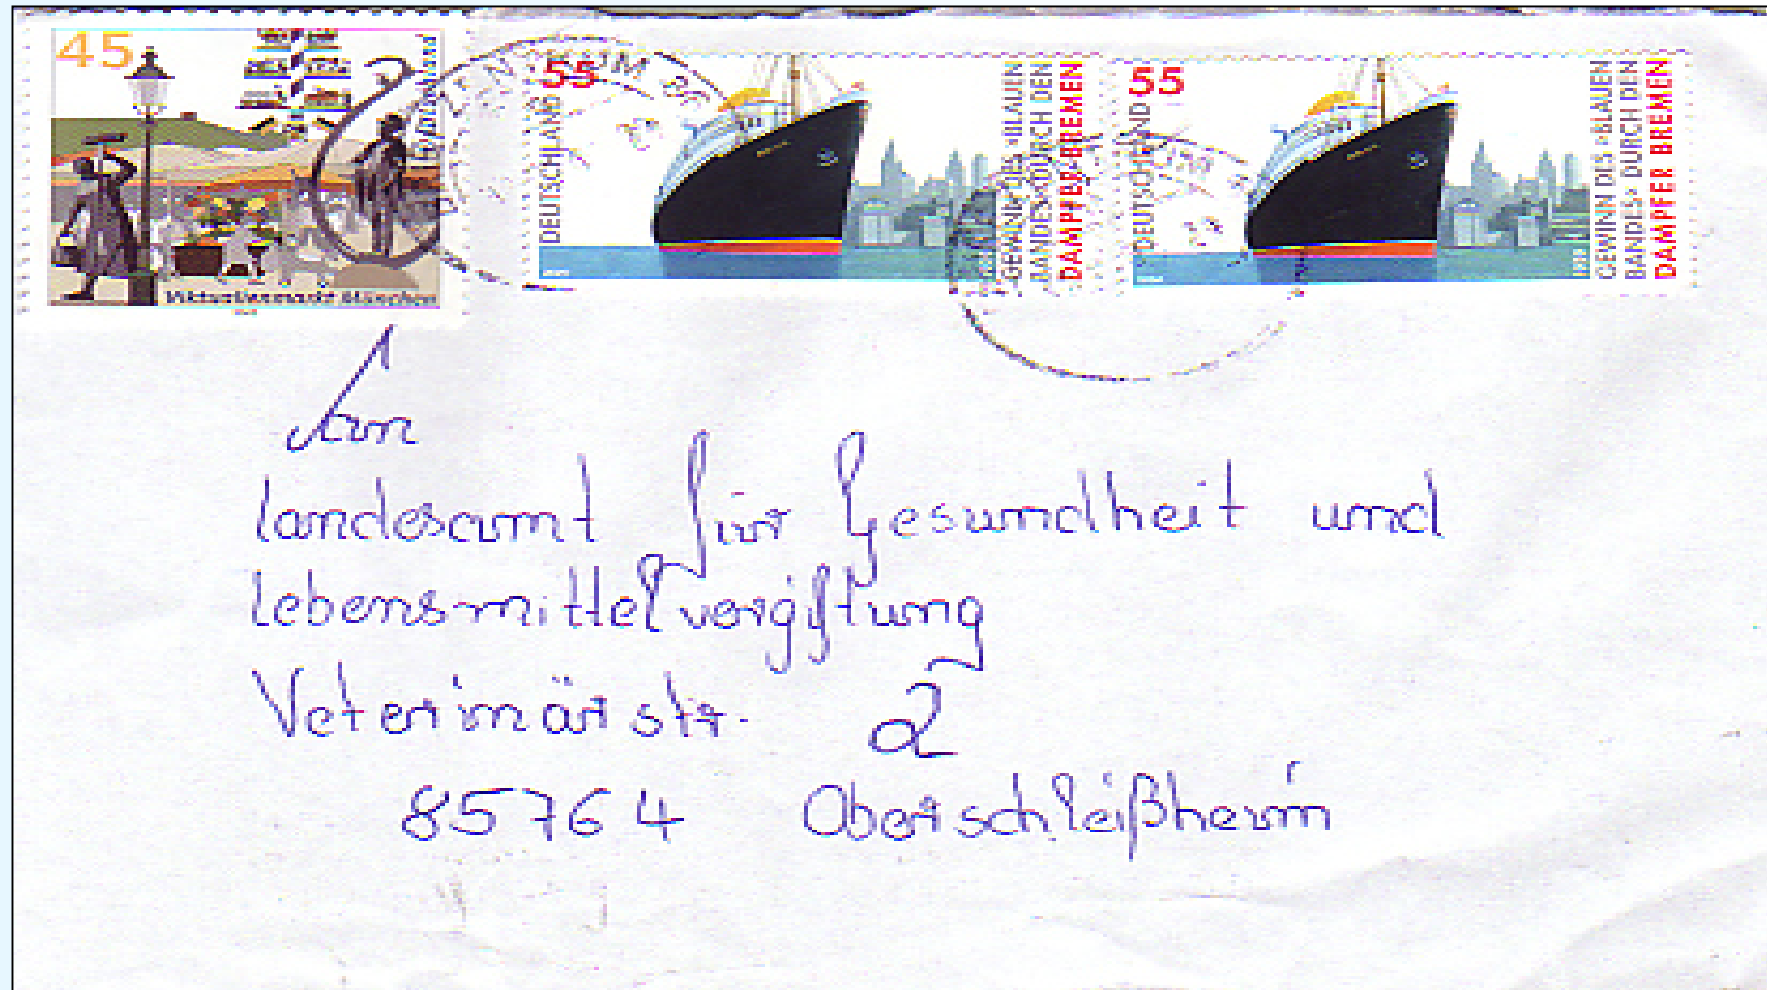 45
Deutschland
Viktualienmarkt München
55
DEUTSCHLAND
GEWINN DES »BLAUEN
BANDES« DURCH DEN
DAMPFER BREMEN
55
DEUTSCHLAND
GEWINN DES »BLAUEN
BANDES« DURCH DEN
DAMPFER BREMEN
An
Landesamt für Gesundheit und
Lebensmittelvergiftung
Veterinärstr. 2
85764 Oberschleißheim